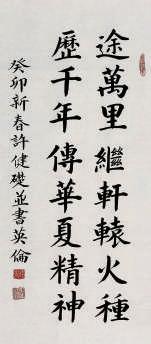 途萬里繼軒轅火種
歷千年傳華夏精神
癸卯新春許健礎並書英倫